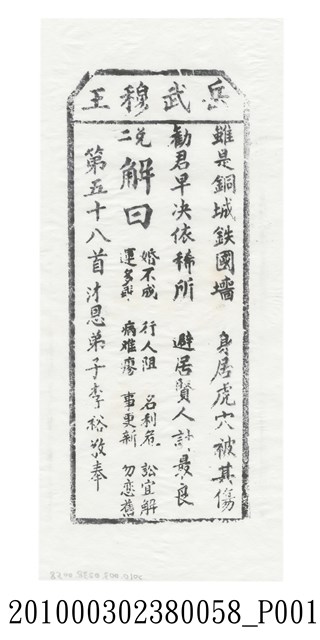 岳武穆王
雖是銅城鉄國墻　身居虎穴被其傷
勸君早决依稀所　避居賢人計最良
兌二
解曰
婚不成　行人阻　名利危　訟宜解
運多乖　病难瘳　事更新　勿恋舊
第五十八首沐恩弟子李裕敬奉
201000302380058_P001